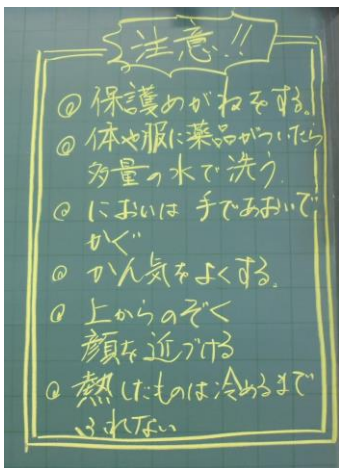 注意!!
◎ 保護めがねをする。
◎ 体や服に薬品がついたら
多量の水で洗う
◎ においは手であおいで
かぐ
◎ かん気をよくする。
◎ 上からのぞく
顔を近づける
◎ 熱したものは冷めるまで
ふれない